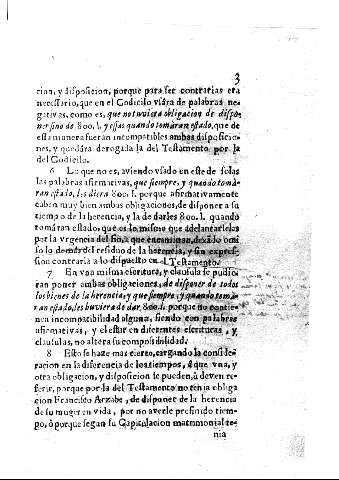 3
cion, y disposicion, porque para ser contrarias era
necessario, que en el Codicilo vsára de palabras ne-
gativas, como es, que no tuviera obligacion de dispo-
ner sino de 800.l. y essas quando tomáran estado, que de
esta manera fueran incompatibles ambas disposicio-
nes, y quedára derogada la del Testamento por la
del Codicilo.
6 Lo que no es, aviendo vsado en este de solas
las palabras afirmativas, que siempre, y quando tomà-
ran estado, les diera 800.l. porque afirmativamente
caben muy bien ambas obligaciones, de disponer a su
tiempo de la herencia, y la de darles 800.l. quando
tomáran estado, que es lo mismo que adelantarselas
por la vrgencia del fin, a que encaminan, dexado omi
so lo demás del residuo de la herencia, y sin expres-
sion contraria a lo dispuesto en el Testamento.
7 En vna misma escritura, y clausula se pudie-
ran poner ambas obligaciones, de disponer de todos
los bienes de la herencia, y que siempre, y quando tomà-
ran estado, les huviera de dar 800.l. porque no contie-
nen incompatibilidad alguna, siendo con palabras
afirmativas, y el estar en diferentes escrituras, y
clausulas, no altera su composibilidad.
8 Esto se haze mas cierto, cargando la conside-
racion en la diferencia de los tiempos, à que vna, y
otra obligacion, y disposicion se pueden, ò deven re-
ferir, porque por la del Testamento no tenia obliga
cion Francisco Arzabe, de disponer de la herencia
de su muger en vida, por no averle prefinido tiem-
po, ò porque segun su Capitulacion matrimonial te-
nia